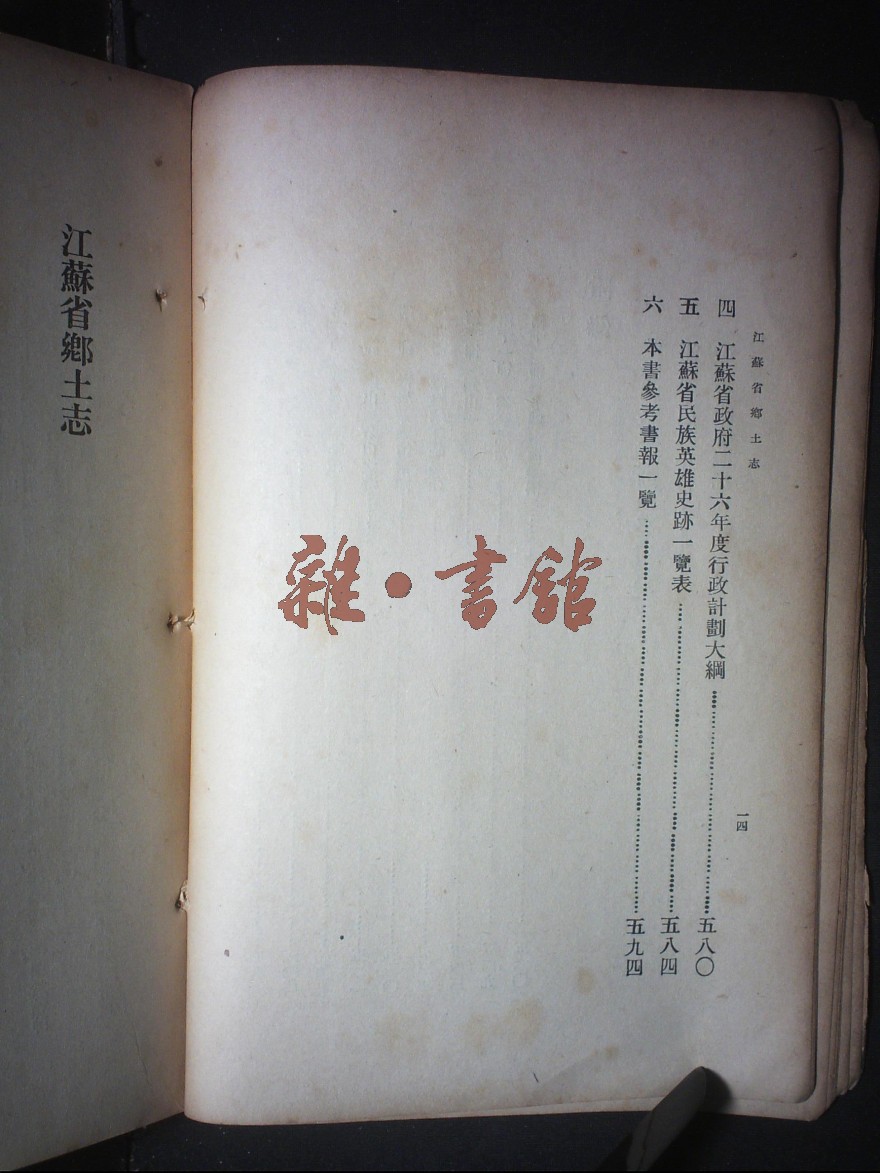 江蘇省鄉土志
四　江蘇省政府二十六年度行政計劃大綱……五八〇
五　江蘇省民族英雄史跡一覽表……五八四
六　本書參考書報一覽……五九四
一四
江蘇省鄉土志
雜·書館